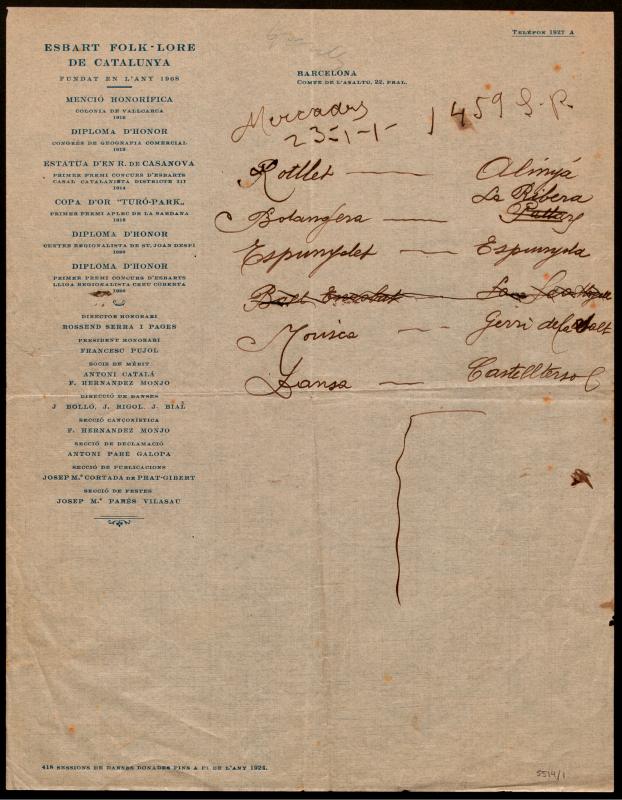 TELÈFON 1827 A
ESBART FOLK-LORE
DE CATALUNYA
FUNDAT EN L'ANY 1908
BARCELONA
COMTE DE L'ASALTO, 22, PRAL.
MENCIÓ HONORÍFICA
COLONIA DE VALLCARCA
DIPLOMA D'HONOR
CONGRÉS DE GEOGRAFIA COMERCIAL
ESTATUA D'EN R. DE CASANOVA
PRIMER PREMI CONCURS D'ESBARTS
CASAL CATALANISTA DISTRICTE III
1914
COPA D'OR "TURÓ-PARK"
PRIMER PREMI APLEC DE LA SARDANA
DIPLOMA D'HONOR
CENTRE REGIONALISTA DE ST. JOAN DESPI
DIPLOMA D'HONOR
PRIMER PREMI CONCURS D'ESBARTS
LLIGA REGIONALISTA CREU COBERTA
DIRECTOR HONORARI
ROSSEND SERRA I PAGES
PRESIDENT HONORARI
FRANCESC PUJOL
SOCIS DE MÈRIT
ANTONI CATALÁ
F. HERNANDEZ MONJO
DIRECCIÓ DE DANSES
J BOLLÓ, J. RIGOL, J. BIAL
SECCIÓ CANÇONÍSTICA
F. HERNANDEZ MONJO
SECCIÓ DE DECLAMACIÓ
ANTONI PARÉ GALOPA
SECCIÓ DE PUBLICACIONS
JOSEP M.ª CORTADA DE PRAT-GIBERT
SECCIÓ DE FESTES
JOSEP M.ª PARÉS VILASAU
Mercaders 1459 S.P.
Rotllet — Alinyá
La Ribera
Bolangera —
Espunyolet — Espunyola
Ball
Mouisca — Gerri de la Salt
Dansa — Castelltersol
418 SESSIONS DE DANSES DONADES FINS A FI DE L'ANY 1924.
5514/1